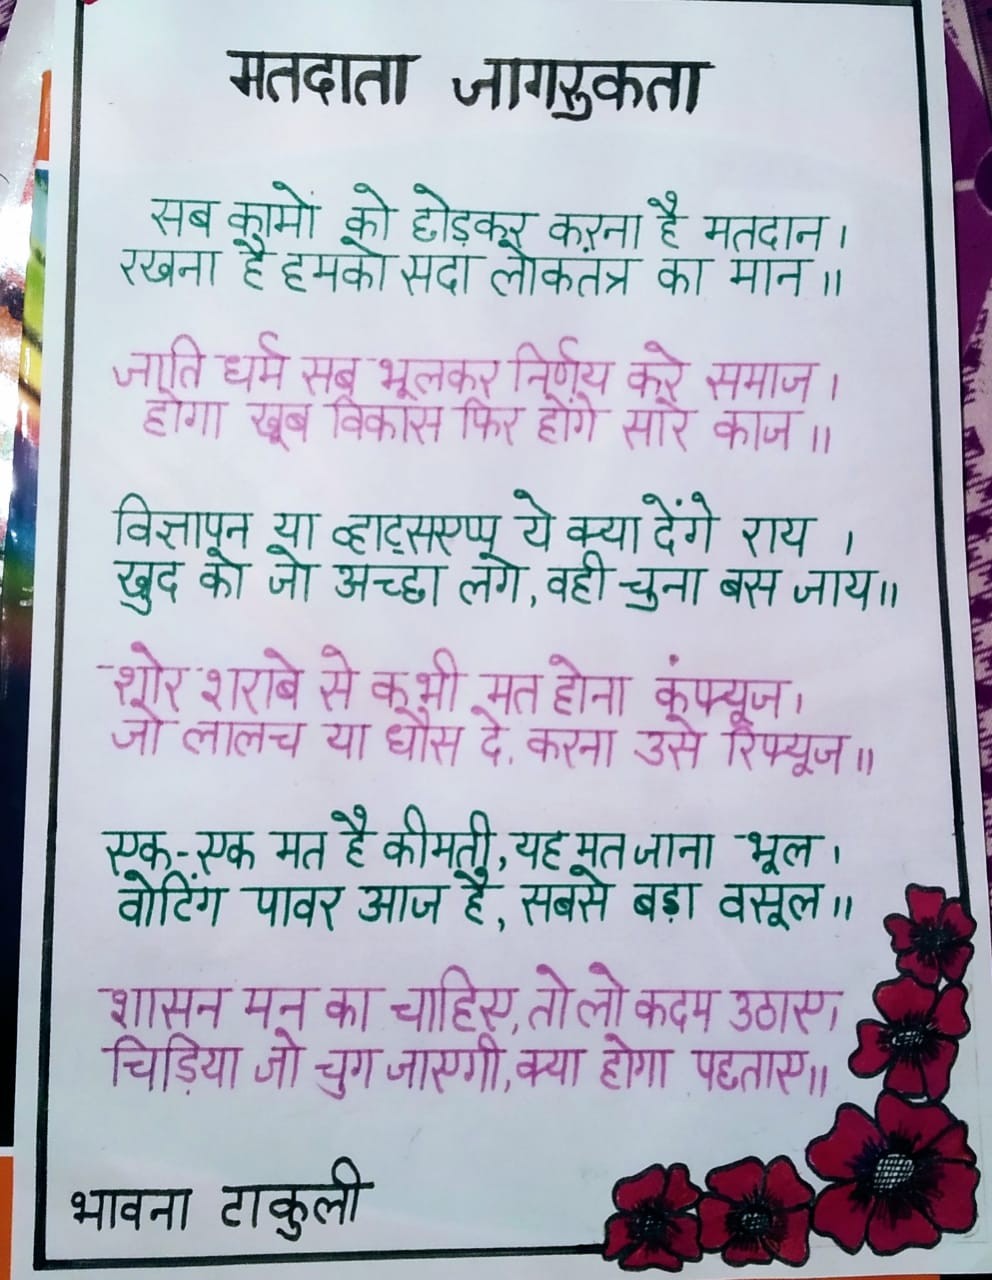 मतदाता जागरुकता
सब कामों को छोड़कर करना है मतदान।
रखना है हमको सदा लोकतंत्र का मान॥
जाति धर्म सब भूलकर निर्णय करे समाज।
होगा खूब विकास फिर होंगे सारे काज॥
विज्ञापन या व्हाट्सएप्प ये क्या देंगे राय।
खुद को जो अच्छा लगे, वही चुना बस जाय॥
शोर शराबे से कभी मत होना कंफ्यूज।
जो लालच या धौंस दे, करना उसे रिफ्यूज॥
एक-एक मत है कीमती, यह मत जाना भूल।
वोटिंग पावर आज है, सबसे बड़ा वसूल॥
शासन मन का चाहिए, तो लो कदम उठाए।
चिड़िया जो चुग जाएगी, क्या होगा पछताए॥
भावना टाकुली